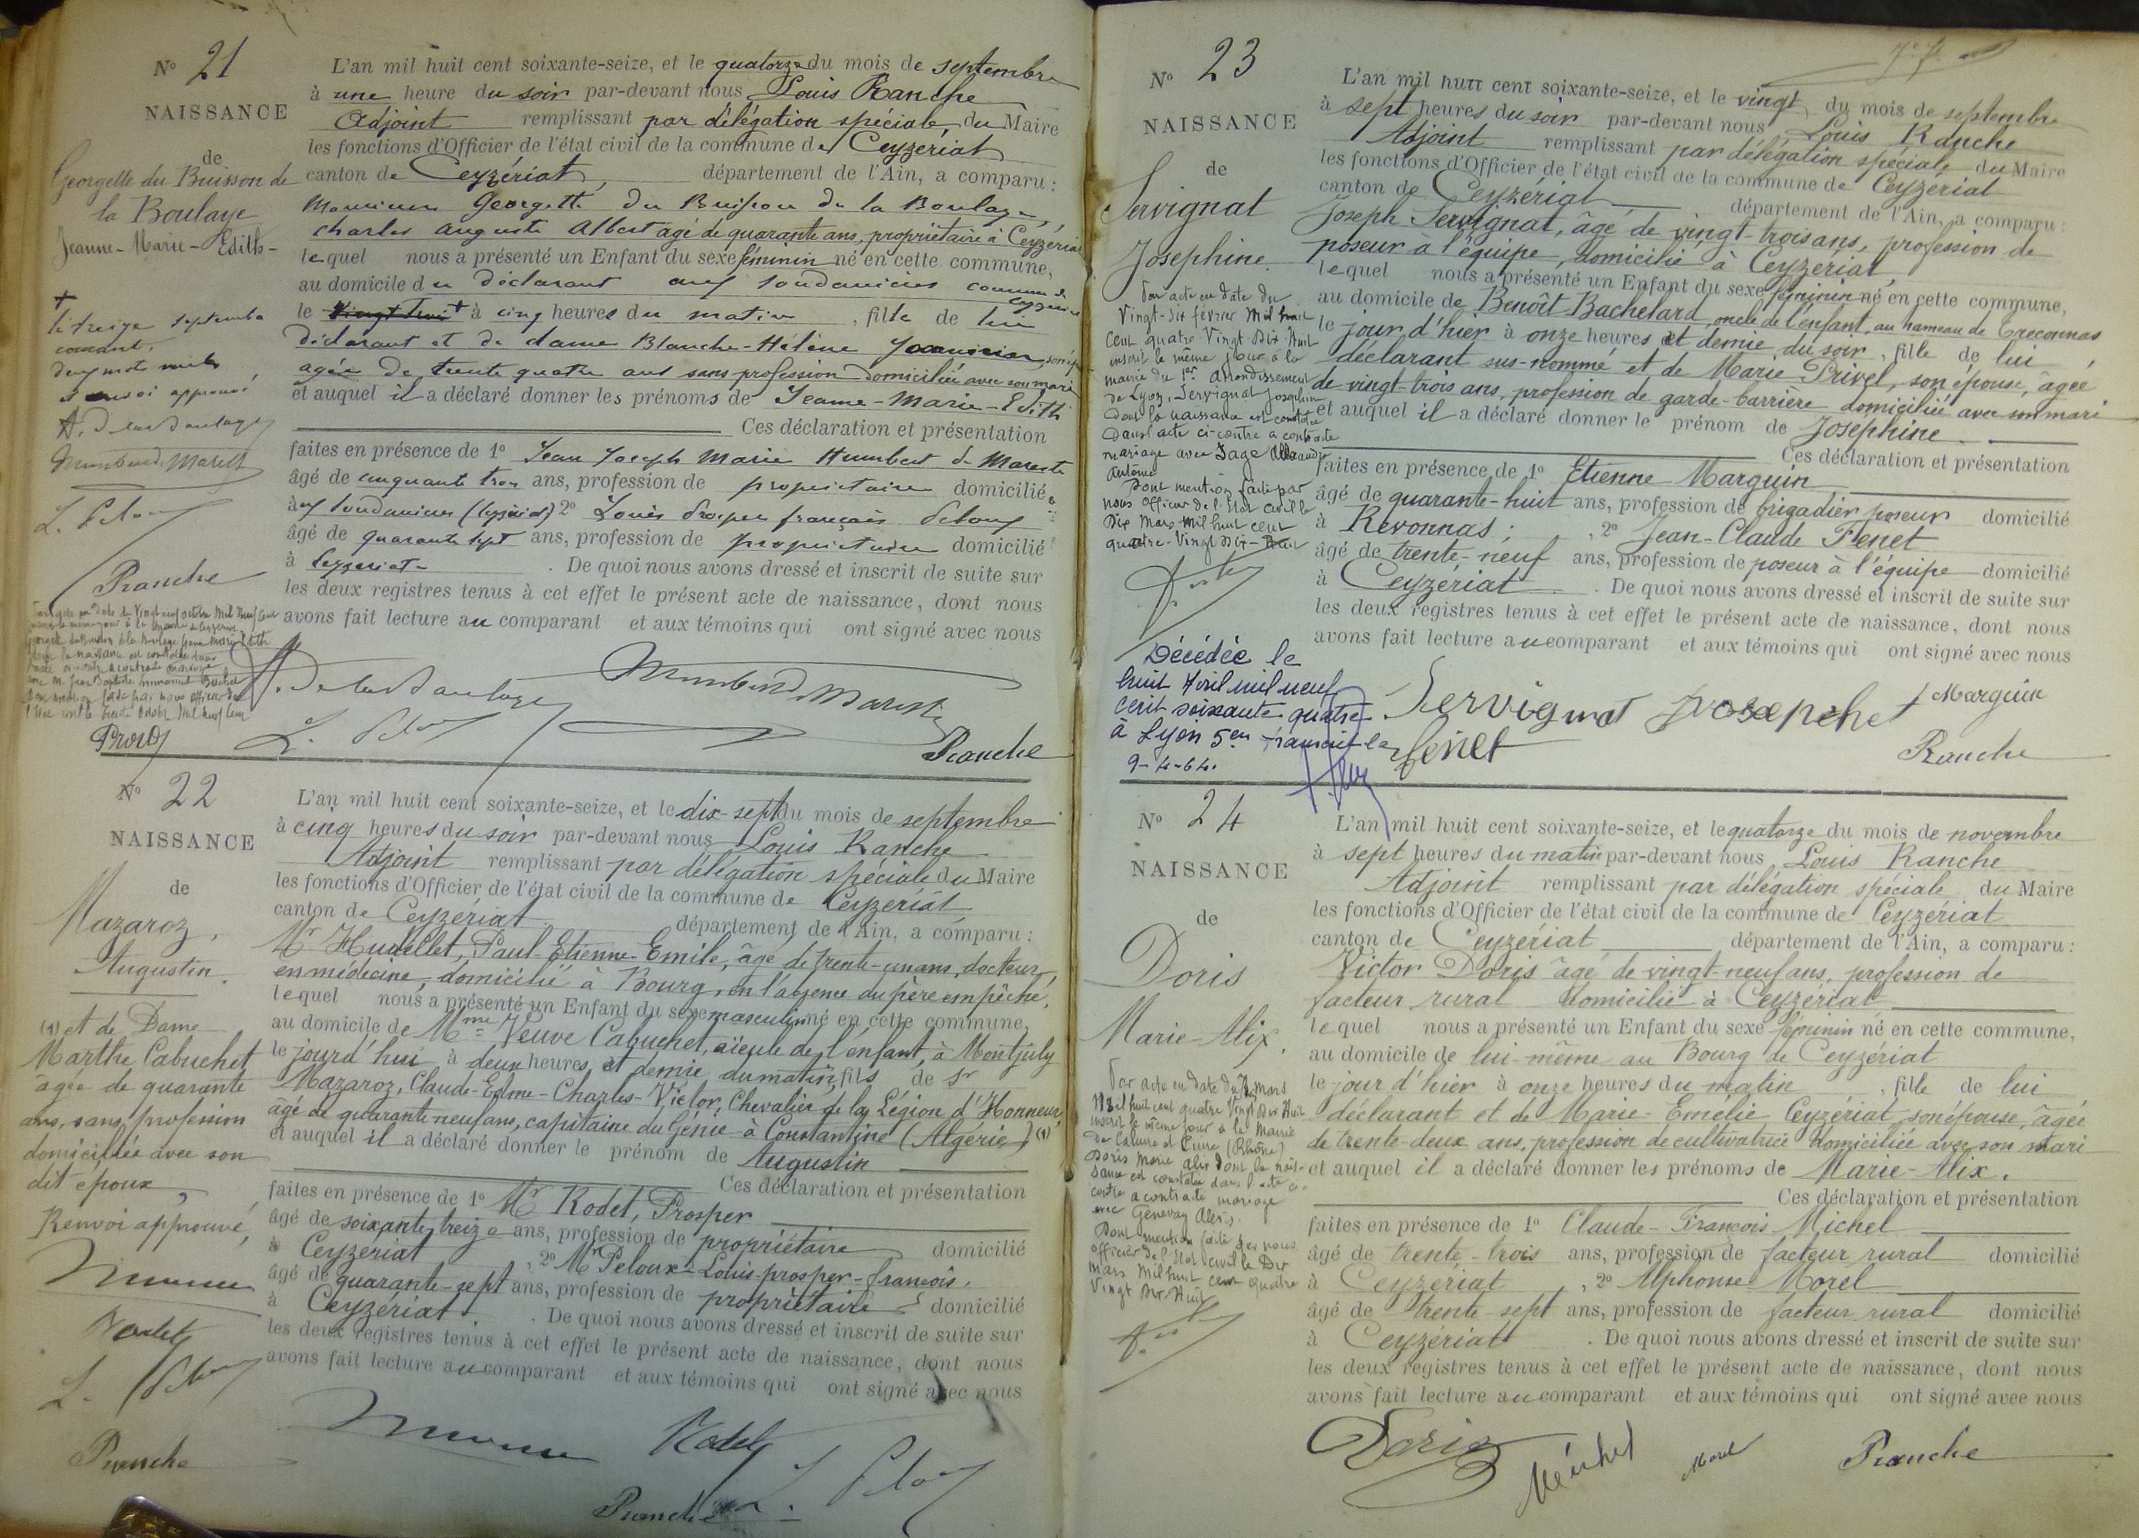 N° 21
NAISSANCE
de
Georgette du Buisson de
la Boulaye
Jeanne-Marie-Edith-
L'an mil huit cent soixante-seize, et le quatorze du mois de septembre
à une heure du soir par-devant nous Louis Ranche
Adjoint remplissant par délégation spéciale du Maire
les fonctions d'Officier de l'état civil de la commune de Ceyzériat
canton de Ceyzériat, département de l'Ain, a comparu :
Monsieur Georgette du Buisson de la Boulaye,
Charles Auguste Albert agé de quarante ans, propriétaire à Ceyzériat
lequel nous a présenté un Enfant du sexe féminin né en cette commune,
au domicile du déclarant aux Soudanières commune de
Ceyzériat
le vingt huit à cinq heures du matin, fille de lui
déclarant et de dame Blanche-Hélène son ép
agée de trente quatre ans sans profession domiciliée avec son mari
et auquel il a déclaré donner les prénoms de Jeanne-Marie-Edith
Ces déclaration et présentation
faites en présence de 1° Jean Joseph Marie Humbert de Mareste
âgé de cinquante trois ans, profession de propriétaire domicilié
aux Soudanières (Ceyzériat) 2° Louis Prosper françois Peloux
âgé de quarante sept ans, profession de propriétaire domicilié
à Ceyzeriat. De quoi nous avons dressé et inscrit de suite sur
les deux registres tenus à cet effet le présent acte de naissance, dont nous
avons fait lecture au comparant et aux témoins qui ont signé avec nous
+
le treize septembre
courant,
deux mots nuls
renvoi approuvé
Ranche
Ranche
N° 22
NAISSANCE
de
Mazaroz,
Augustin.
L'an mil huit cent soixante-seize, et le dix-sept du mois de septembre
à cinq heures du soir par-devant nous Louis Ranche
Adjoint remplissant par délégation spéciale du Maire
les fonctions d'Officier de l'état civil de la commune de Ceyzériat
canton de Ceyzériat département de l'Ain, a comparu :
Mr Hudellet, Paul-Etienne-Emile, âgé de trente-un ans, docteur
en médecine, domicilié à Bourg, en l'absence du père empêché,
lequel nous a présenté un Enfant du sexe masculin né en cette commune,
au domicile de Mme Veuve Cabuchet, aïeule de l'enfant, à Montjuly
le jourd'hui à deux heures et demie du matin, fils de Sr
Mazaroz, Claude-Edme-Charles-Victor, Chevalier de la Légion d'Honneur,
âgé de quarante neuf ans, capitaine du Génie à Constantine (Algérie) (1)
et auquel il a déclaré donner le prénom de Augustin
Ces déclaration et présentation
faites en présence de 1° Mr Rodet, Prosper
âgé de soixante treize ans, profession de propriétaire domicilié
à Ceyzériat, 2° Mr Peloux-Louis-prosper-françois.
âgé de quarante-sept ans, profession de propriétaire domicilié
à Ceyzériat. De quoi nous avons dressé et inscrit de suite sur
les deux registres tenus à cet effet le présent acte de naissance, dont nous
avons fait lecture au comparant et aux témoins qui ont signé avec nous
(1) et de Dame
Marthe Cabuchet
âgée de quarante
ans, sans profession
domiciliée avec son
dit époux,
Renvoi approuvé,
Rodet
Ranche
Rodet
Ranche
N° 23
NAISSANCE
de
Servignat
Josephine.
L'an mil huit cent soixante-seize, et le vingt du mois de septembre
à sept heures du soir par-devant nous Louis Ranche
Adjoint remplissant par délégation spéciale du Maire
les fonctions d'Officier de l'état civil de la commune de Ceyzériat
canton de Ceyzériat département de l'Ain, a comparu :
Joseph Servignat, âgé de vingt-trois ans, profession de
poseur à l'équipe, domicilié à Ceyzériat,
lequel nous a présenté un Enfant du sexe féminin né en cette commune,
au domicile de Benoît Bachelard, oncle de l'enfant, au hameau de Treconnas
le jour d'hier à onze heures et demie du soir, fille de lui
déclarant sus-nommé et de Marie Privel, son épouse, âgée
de vingt-trois ans, profession de garde-barrière domiciliée avec son mari
et auquel il a déclaré donner le prénom de Josephine.
Ces déclaration et présentation
faites en présence de 1° Etienne Marguin
âgé de quarante-huit ans, profession de brigadier poseur domicilié
à Revonnas, 2° Jean-Claude Fenet
âgé de trente-neuf ans, profession de poseur à l'équipe domicilié
à Ceyzériat. De quoi nous avons dressé et inscrit de suite sur
les deux registres tenus à cet effet le présent acte de naissance, dont nous
avons fait lecture au comparant et aux témoins qui ont signé avec nous
Par acte en date du
Vingt-six février Mil huit
Cent quatre Vingt Dix Huit
inscrit le même jour à la
mairie du 1er Arrondissement
de Lyon, Servignat Josephine
dont la naissance est constatée
dans l'acte ci-contre a contracté
mariage avec Sage Alexandre
Antoine
Dont mention faite par
nous officier de l'Etat civil le
Dix Mars Mil huit cent
quatre-Vingt Dix-Huit
Décédée le
huit Avril mil neuf
cent soixante quatre
à Lyon 5em transcrit le
9-4-64.
Servignat Joseph
Marguin
fenet
Ranche
N° 24
NAISSANCE
de
Doris
Marie-Alix.
L'an mil huit cent soixante-seize, et le quatorze du mois de novembre
à sept heures du matin par-devant nous Louis Ranche
Adjoint remplissant par délégation spéciale du Maire
les fonctions d'Officier de l'état civil de la commune de Ceyzériat
canton de Ceyzériat département de l'Ain, a comparu :
Victor Doris âgé de vingt-neuf ans, profession de
facteur rural domicilié à Ceyzériat
lequel nous a présenté un Enfant du sexe féminin né en cette commune,
au domicile de lui-même au Bourg de Ceyzériat
le jour d'hier à onze heures du matin, fille de lui
déclarant et de Marie-Emélie Ceyzériat son épouse, âgée
de trente-deux ans, profession de cultivatrice domiciliée avec son mari
et auquel il a déclaré donner les prénoms de Marie-Alix.
Ces déclaration et présentation
faites en présence de 1° Claude-François Michel
âgé de trente-trois ans, profession de facteur rural domicilié
à Ceyzériat, 2° Alphonse Morel
âgé de trente-sept ans, profession de facteur rural domicilié
à Ceyzériat. De quoi nous avons dressé et inscrit de suite sur
les deux registres tenus à cet effet le présent acte de naissance, dont nous
avons fait lecture au comparant et aux témoins qui ont signé avec nous
Par acte en date du mars
Mil huit cent quatre Vingt Dix Huit
inscrit le même jour à la Mairie
de Caluire et Cuire (Rhône)
Doris Marie Alix dont la nais-
sance est constatée dans l'acte ci-
contre a contracté mariage
avec Genevay Alexis.
Dont mention faite par nous
officier de l'Etat civil le Dix
Mars Mil huit cent quatre
Vingt Dix-Huit
Doris
Michel
Morel
Ranche